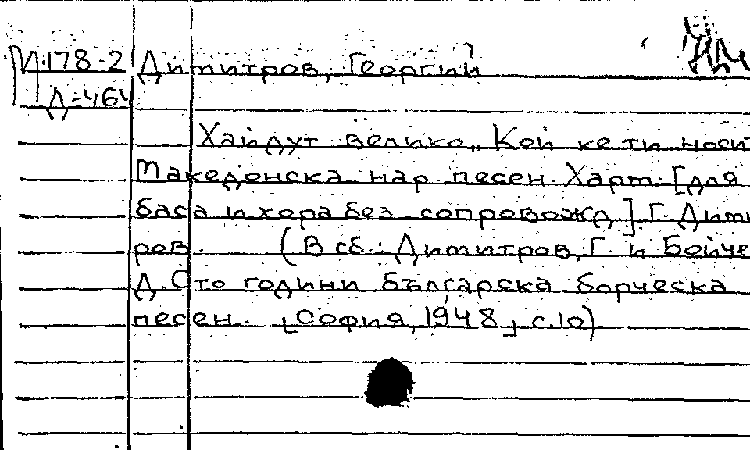 М178-2 Димитров, Георгий
Д-464
Хайдут велико, Кой ке ти носи
Македонска нар песен. Харт. [для
баса и хора без сопровожд]. Г. Дими
ров. (В сб.: Димитров, Г. и Бойче
Д. Сто години българска борческа
песен. [София, 1948] с.10)